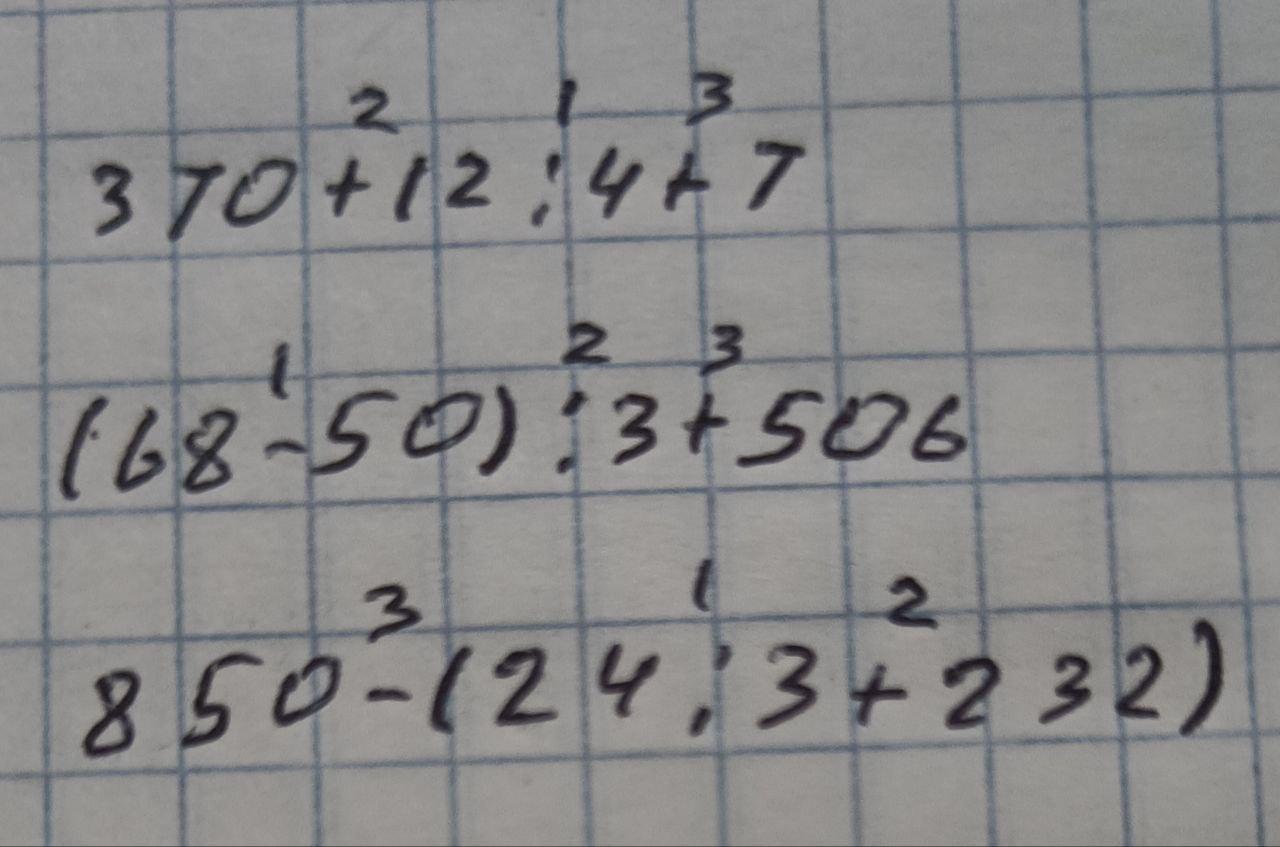 2 1 3
370+12:4+7
1 2 3
(68-50):3+506
3 1 2
850-(24:3+232)